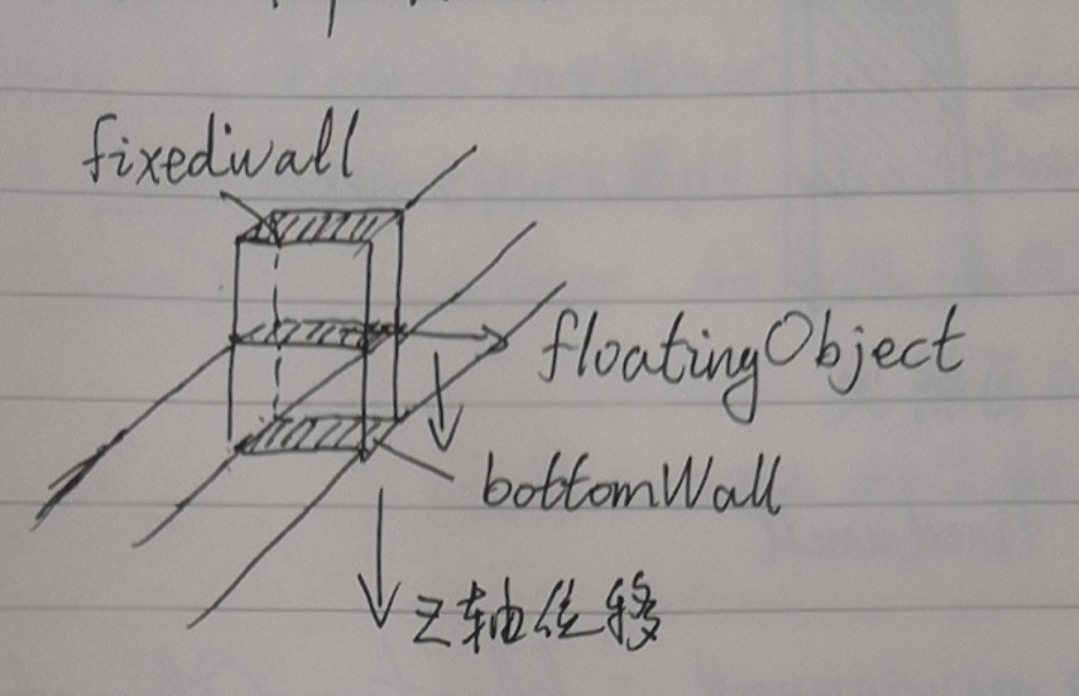 fixedwall
floatingObject
bottomWall
Z轴位移